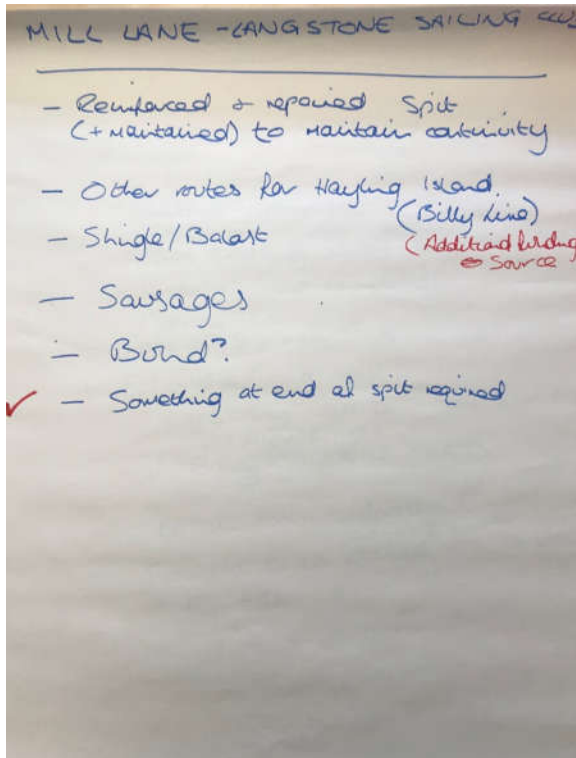 MILL LANE - LANGSTONE SAILING CLUB
- Reinforced + repaired Spit
(+ Maintained) to maintain continuity
- Other routes for Hayling Island
(Billy Line)
- Shingle/Balast
(Additional funding
Source
- Sausages
- Bund?
✓ - Something at end of spit required